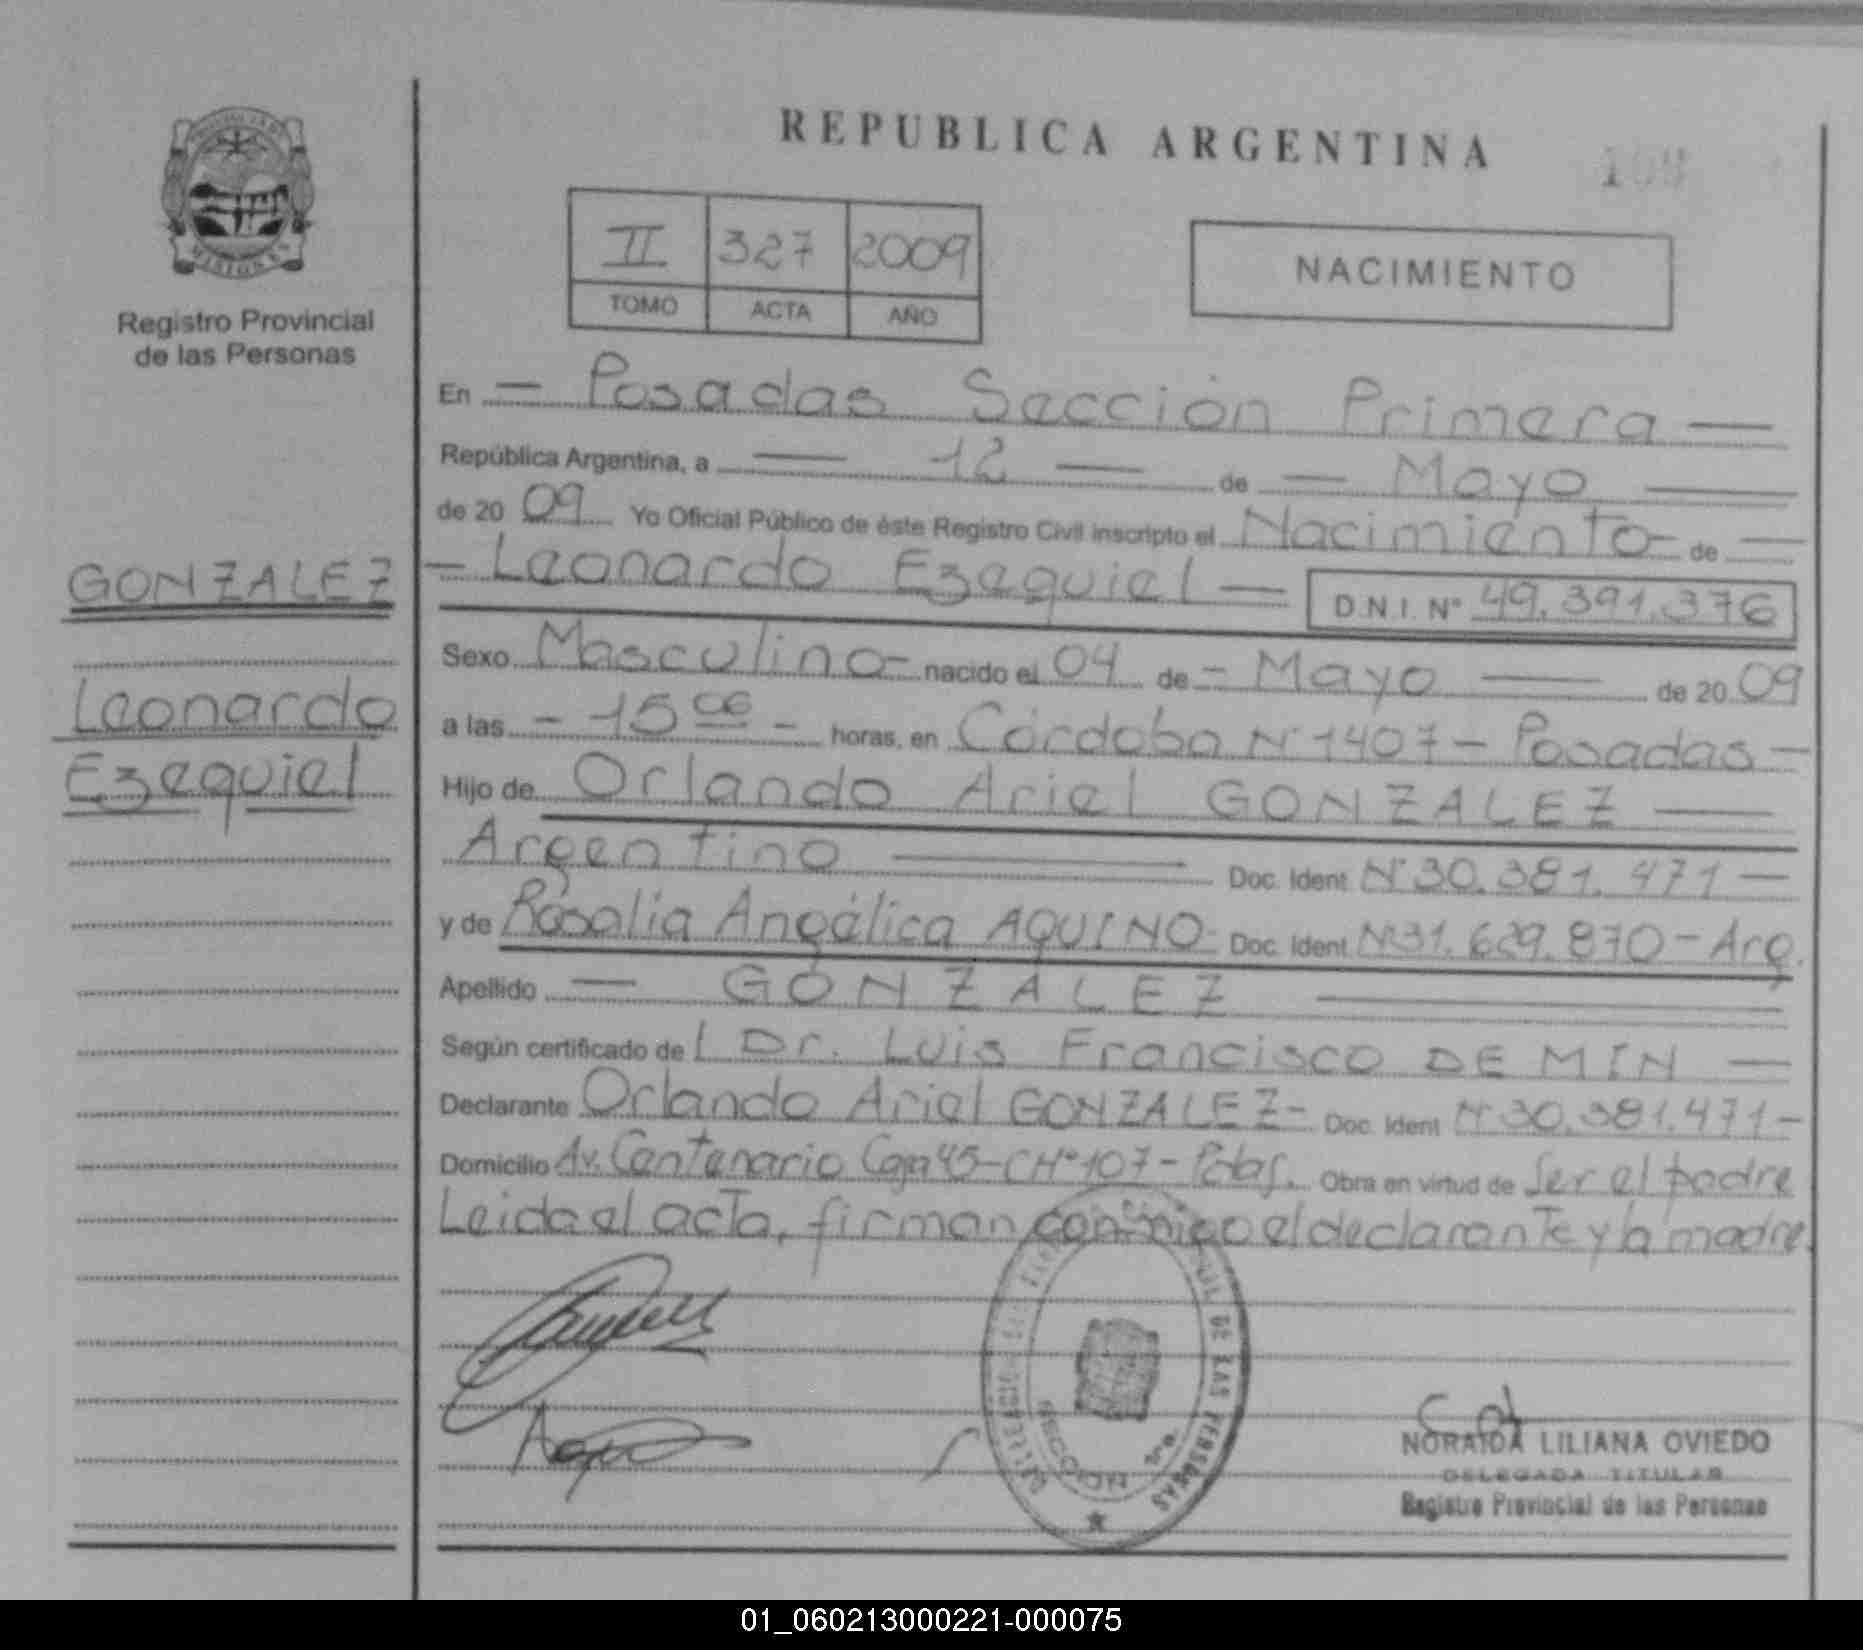 REPUBLICA ARGENTINA
PROVINCIA DE
MISIONES
Registro Provincial
de las Personas
II 327 2009
TOMO ACTA AÑO
NACIMIENTO
En — Posadas Sección Primera —
República Argentina, a — 12 — de — Mayo —
de 20 09 Yo Oficial Público de éste Registro Civil inscripto el Nacimiento — de —
GONZALEZ
— Leonardo Ezequiel — D.N.I. Nº 49.391.376
Sexo Masculino — nacido el 04 de — Mayo — de 20 09
Leonardo
a las — 15 06 — horas, en Córdoba Nº 1407 — Posadas —
Ezequiel
Hijo de Orlando Ariel GONZALEZ —
Argentino — Doc. Ident. Nº 30.381.471 —
y de Rosalia Angélica AQUINO — Doc. Ident. Nº 31.629.870 — Arg.
Apellido — GONZALEZ —
Según certificado de l Dr. Luis Francisco DE MIN —
Declarante Orlando Ariel GONZALEZ — Doc. Ident. Nº 30.381.471 —
Domicilio Av. Centenario Casa 45 — CHº 107 — Pdas. Obra en virtud de Ser el padre
Leida el acta, firman conmigo el declarante y la madre.
DE LAS PERSONAS
SECCION 1ra.
NORAIDA LILIANA OVIEDO
DELEGADA TITULAR
Registro Provincial de las Personas
01_060213000221-000075